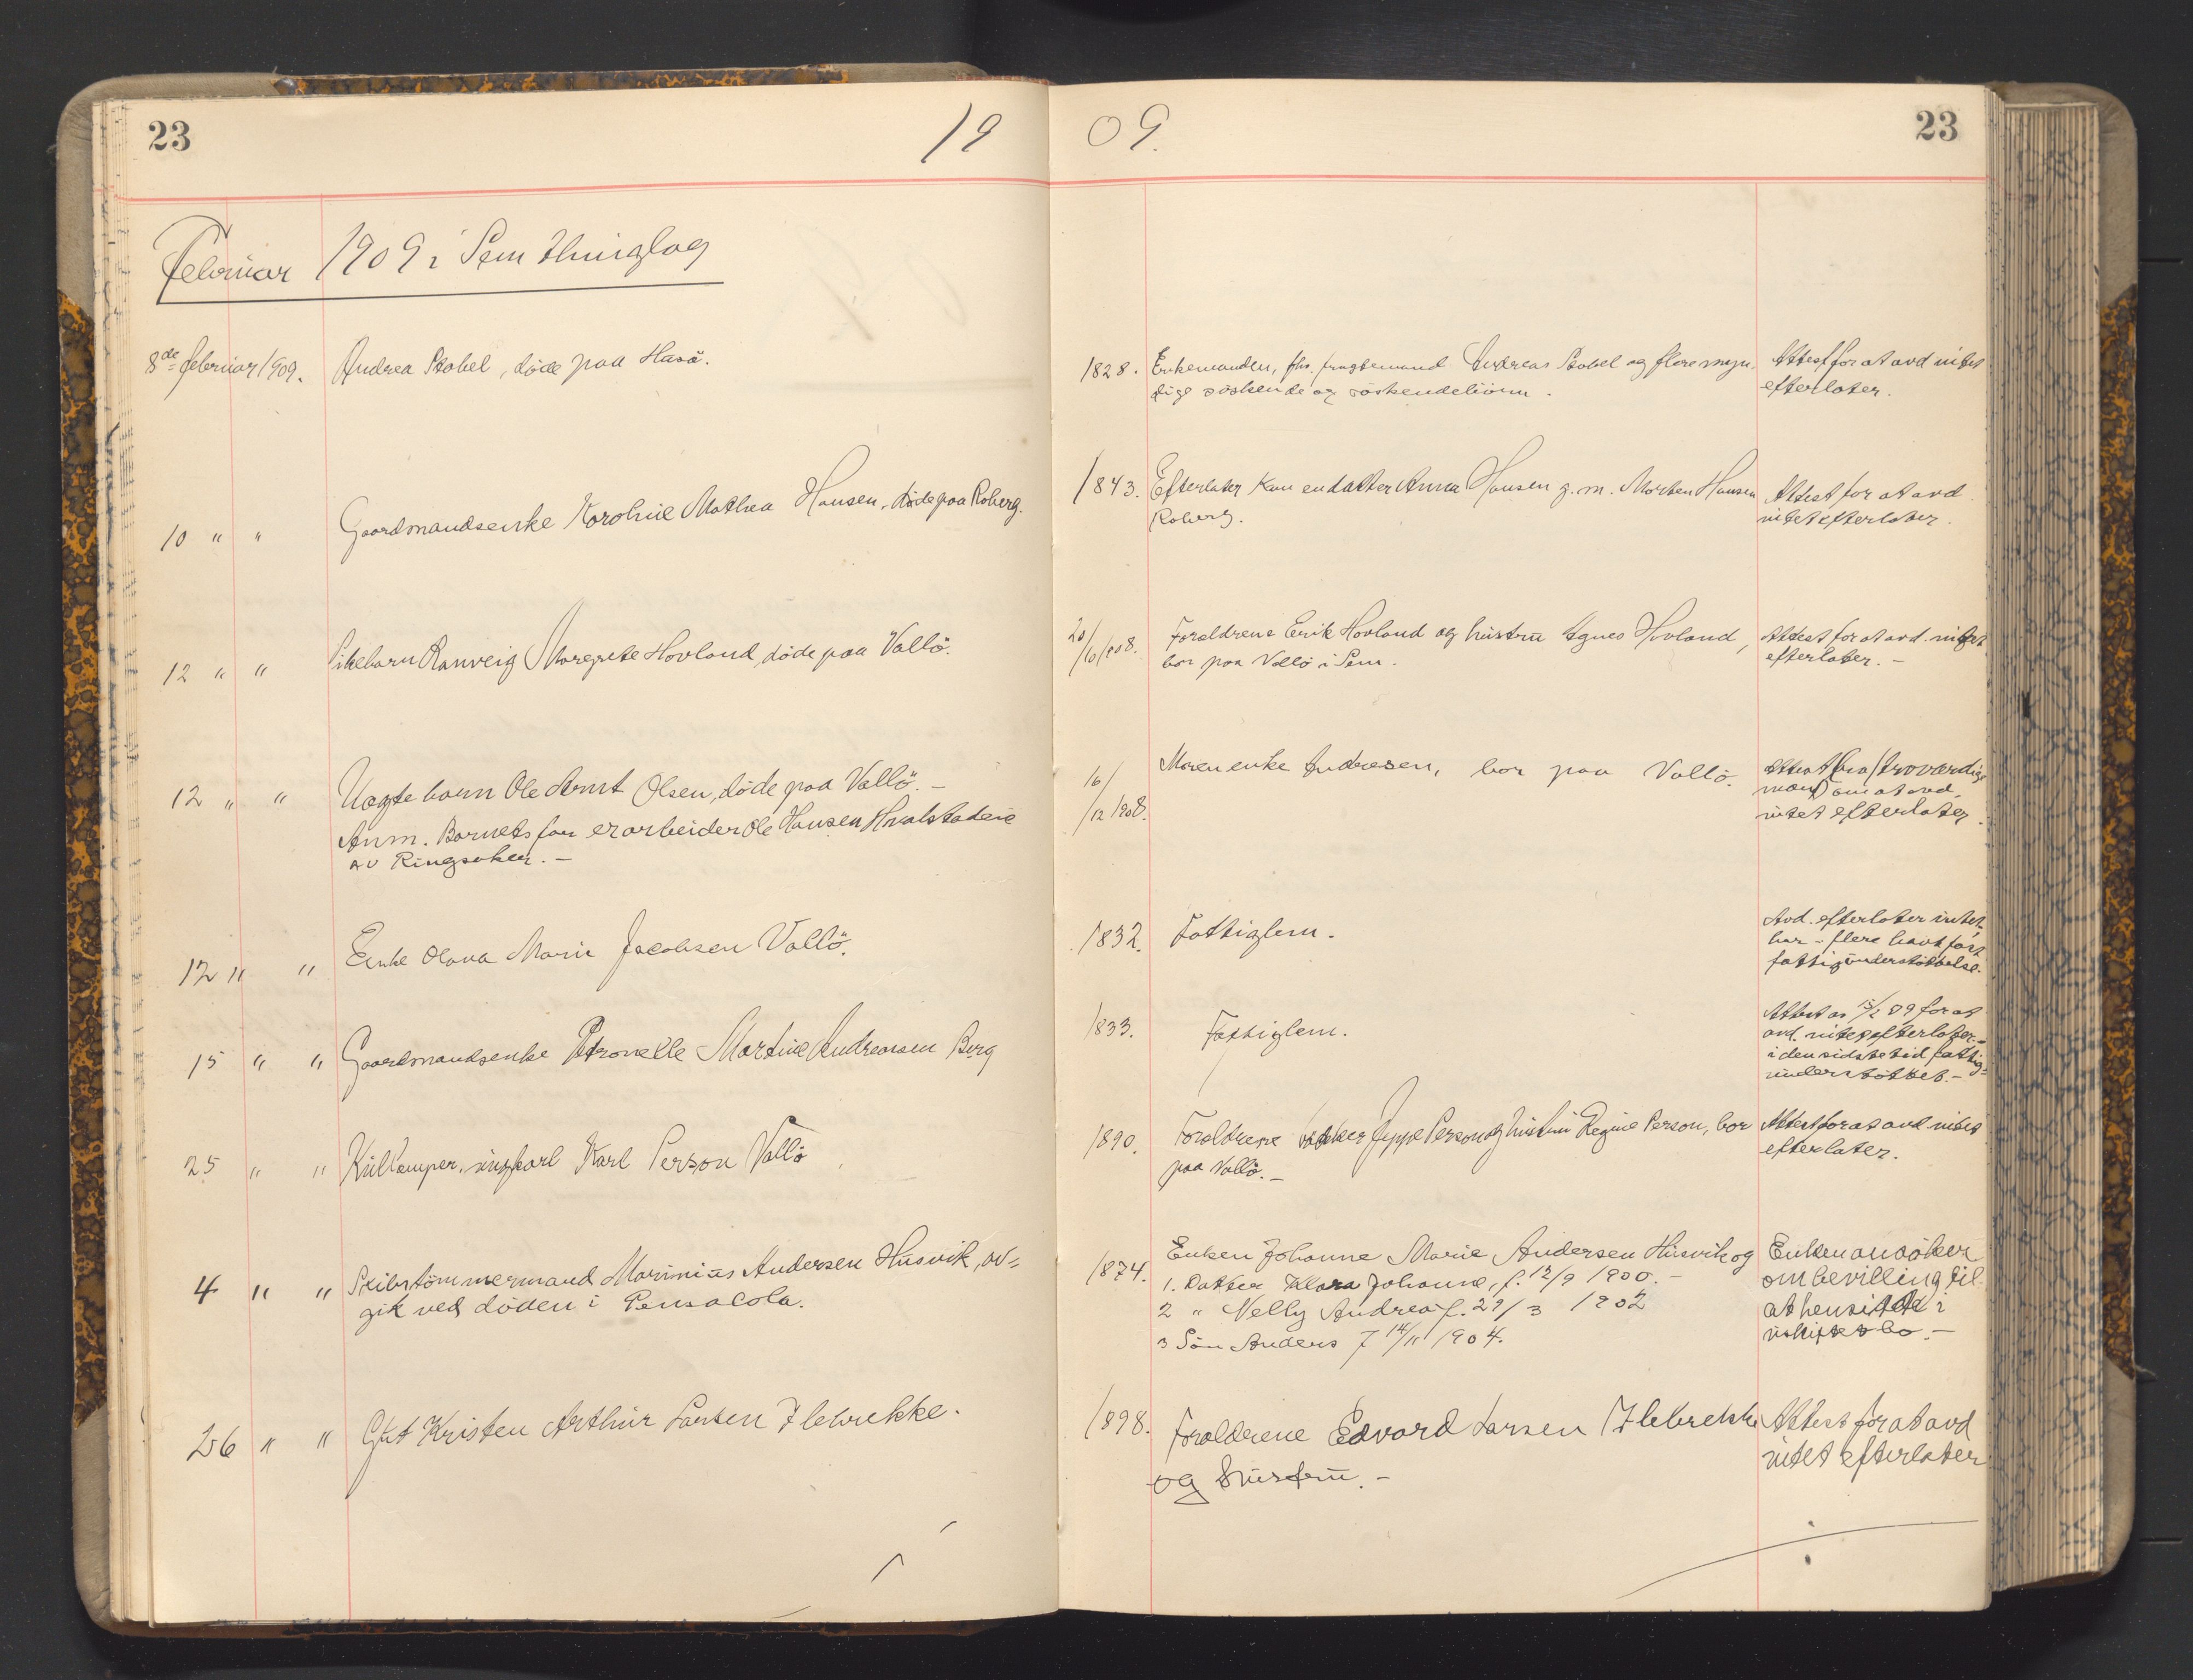 23
19
09.
23
Februar 1909 i Sem Thinglag
8de februar 1909.
Andrea Stobel, døde paa Husö.
1828.
Enkemanden, fhv. fragtemand Andreas Stobel og flere myn-
dige söskende og söskendebörn.
Attest for at avd intet
efterlater.
10 " "
Gaardmandsenke Karoline Mathea Hansen, døde paa Roberg.
1843.
Efterlater kun en datter Anna Hansen g. m. Morten Hansen
Roberg.
Attest for at avd
intet efterlater.
12 " "
Pikebarn Ranveig Margrete Hovland, døde paa Vallö.
20/10 1908.
Foraldrene Erik Hovland og hustru Agnes Hovland,
bor paa Vallö i Sem.
Attest for at avd. intet
efterlater. –
12 " "
Uagte barn Ole Arnt Olsen, døde paa Vallö. –
Anm. Barnets far er arbeider Ole Hansen
av Ringsaker. –
16/12 1908.
Maren enke Andresen, bor paa Vallö.
Attest (fra troværdige
mænd) om at avd.
intet efterlater.
12 " "
Enke Olava Marie Jacobsen Vallö.
1832.
Fattiglem.
Avd. efterlater intet,
har i flere havt fast
fattigunderstöttelse.
15 " "
Gaardmandsenke Petronelle Martine Andreasen Berg
1833.
Fattiglem.
Attest av 15/2 09 for at
avd. intet efterlater. –
i den sidste tid fattig=
understöttet. –
25 " "
Kullemper, ungkarl Karl Person Vallö
1890.
Foraldrene Jeppe Person og hustru Regine Person, bor
paa Vallö. –
Attest for at avd intet
efterlater.
4 " "
Skibstömmermand Marinius Andersen Husvik, av=
gik ved döden i Pensacola.
1874.
Enken Johanne Marie Andersen Husvik og
1. Datter Klara Johanne, f. 12/9 1900. –
2 " Nelly Andrea f. 29/3 1902
3 Sön Anders f 14/11 1904.
Enken ansöker
om bevilling til
at hensitte i
uskiftet bo. –
26 " "
Gut Kristen Arthur Larsen Ilebrekke.
1898.
Foraldrene Edvard Larsen Ilebrekke
og hustru. –
Attest for at avd
intet efterlater